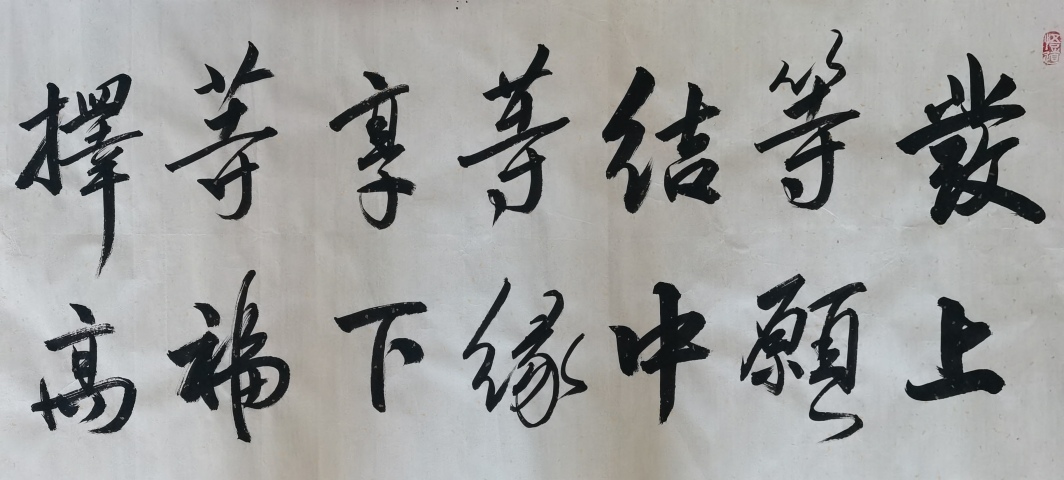 發上
等願
結中
等緣
享下
等福
擇高